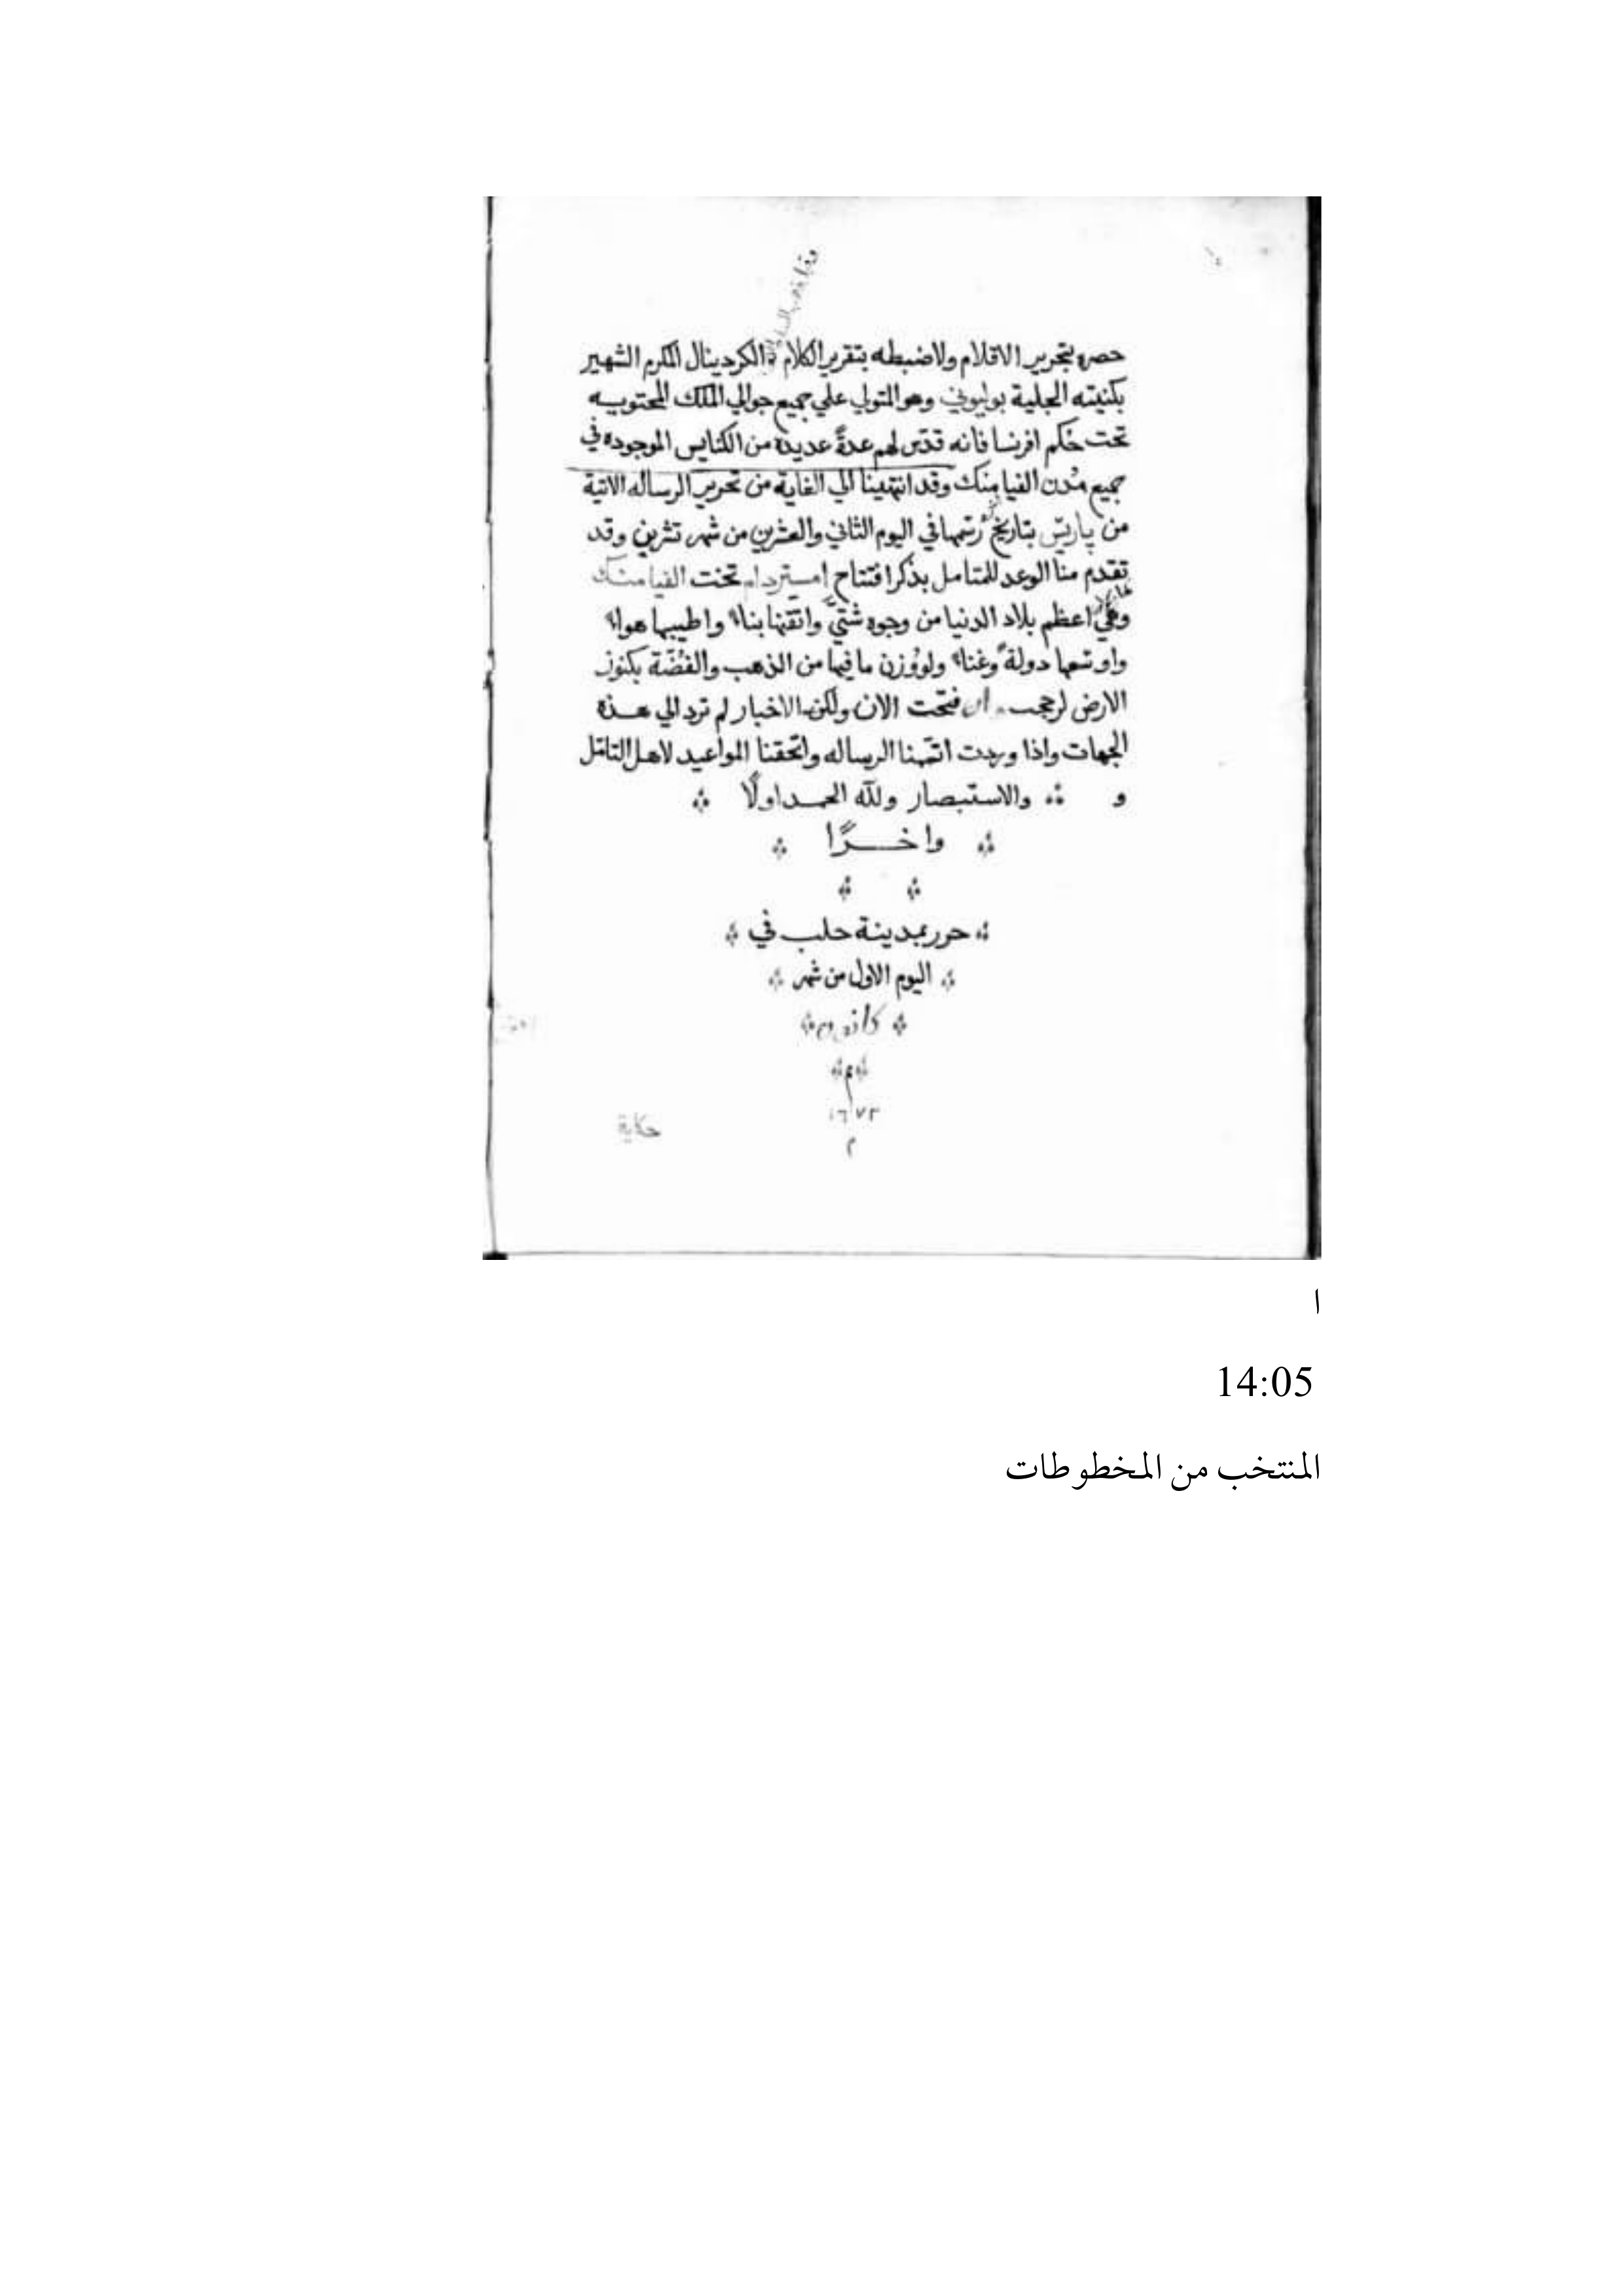 حصره بتحرير الاقلام ولا ضبطه بتقرير الكلام الكردينال المكرم الشهير
بكنيته الجلية بوليوني وهو المتولي علي جميع حوالي الملك المحتويه
تحت حكم افرنسا فانه قدّس لهم عدةً عديدة من الكنايس الموجوده في
جميع مُدن الفيامنك وقد انتهينا الي الغاية من تحرير الرساله الاتية
من پاريس بتاريخ رسمها في اليوم الثاني والعشرين من شهر تشرين وقد
تقدم منا الوعد للمتامل بذكر افتتاح امستردام تخت الفيامنك
وهي اعظم بلاد الدنيا من وجوه شتيّ واتقنها بناءً واطيبها هواءً
واوسعها دولةً وغناءً ولو وُزن ما فيها من الذهب والفضّة بكنوز
الارض لرجحت ان فتحت الان ولكن الاخبار لم ترد الي هذه
الجهات واذا وردت اتممنا الرساله واتحقنا المواعيد لاهل التامّل
و والاستبصار ولله الحمد اولًا
واخرًا
حرر بمدينة حلب في
اليوم الاول من شهر
كانون
م
١٦٧٢
م
حكاية
ا
14:05
المنتخب من المخطوطات